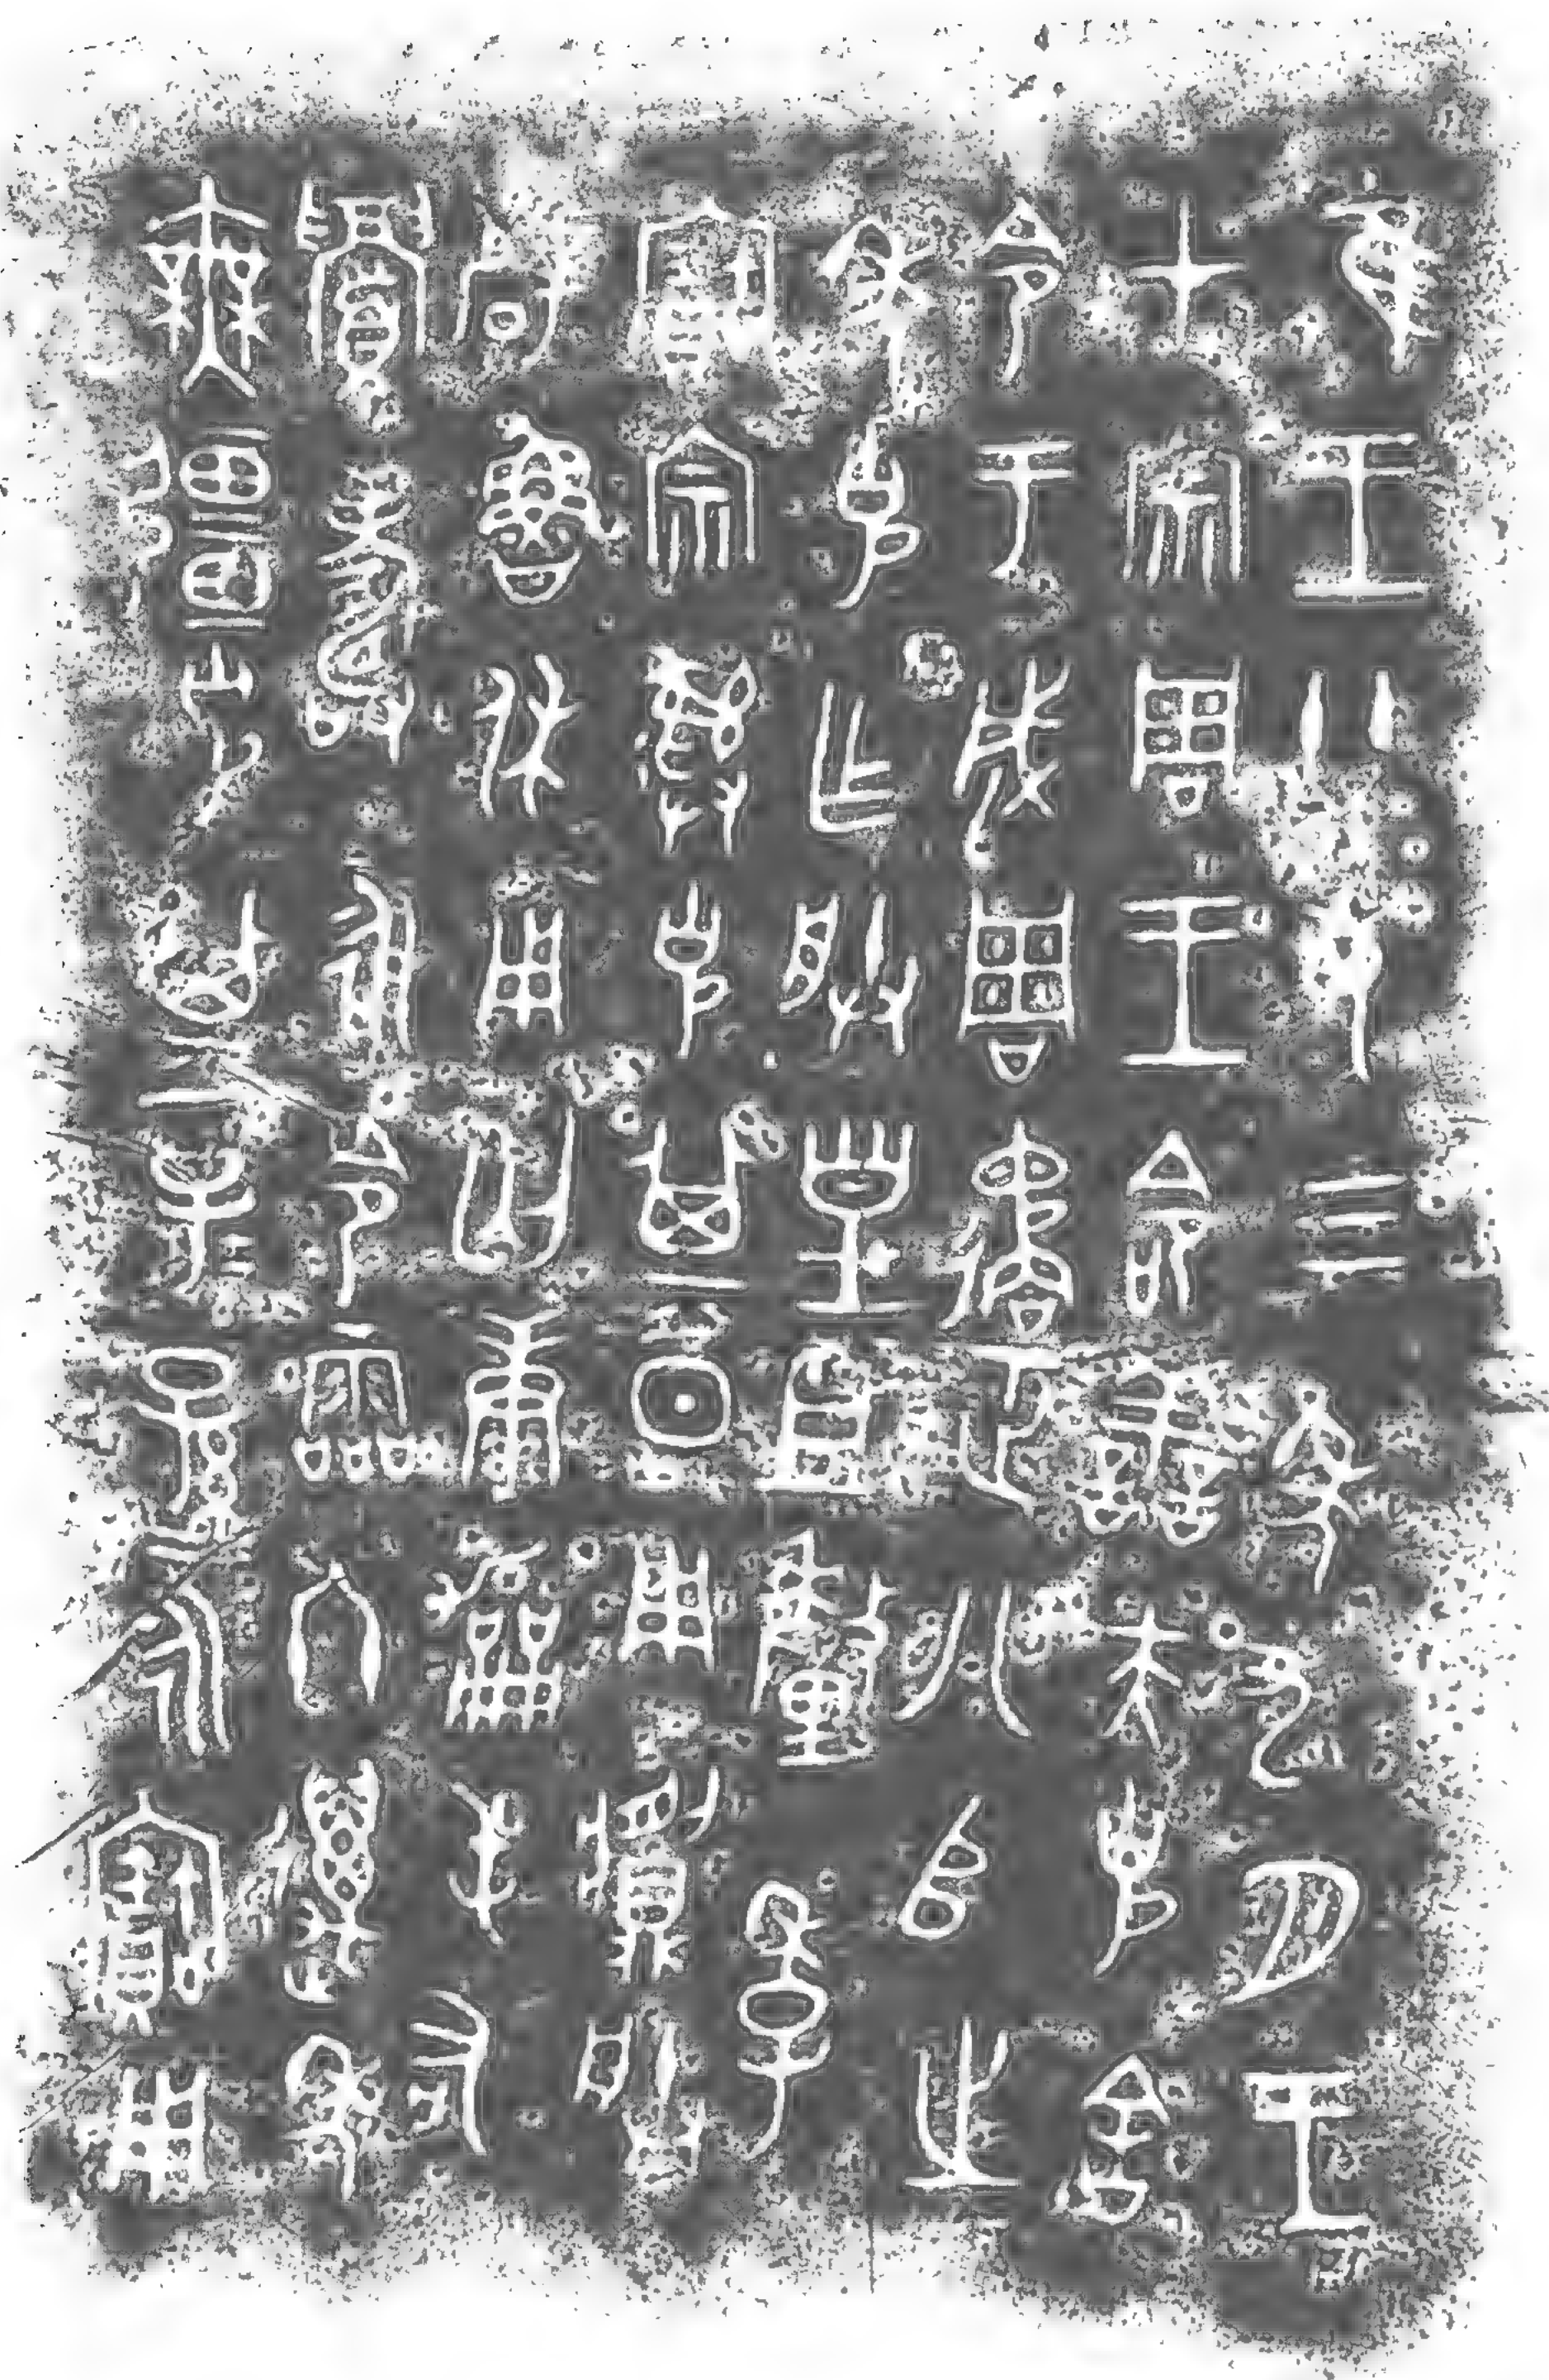 隹王廿又三年九月王
才宗周王命善夫克舍
令于成周遹正八𠂤之
年克乍朕皇且釐季
寶宗彝克其日用𩰫朕
辟魯休用匄康勵屯右
眉壽永令霝冬萬年
無疆克其子子孫孫永寶用